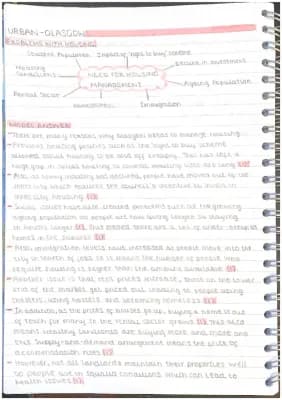 URBAN - GLASGOW
PROBLEMS WITH HOUSING
Impact of "right to buy" scheme
Decline in investment
Housing Conditions
NEED FOR HOUSING MANAGEMENT
Ageing Population
Rented Sector
Homelessness
Immigration
MODEL ANSWER
There are many reasons why Glasgow needs to manage housing.
Previous housing policies such as the right to buy scheme
allowed social housing to be sold off cheaply. This has left a
huge gap in social housing so council waiting lists are long
Also, as heavy industry has declined, people have moved out of the
inner city which reduces the council's incentive to invest in
inner city housing
Social
have also created problems such as the growing
ageing population as people are now living longer so staying
in houses longer
This means there are a lot of under-occupied
homes in the suburbs
Also, immigration levels have increased as people move into the
city in search of jobs so it means the number of people who
require housing is bigger than the amount available
Another issue is that rent prices increase, those on the lower
end of the market get priced out leading to people being
using hostels and becoming homeless
In addition, as the prices of homes go up, buying a home is out
of reach for many in the rental sector
This also
means wealthy landlords are buying more and more and
this supply and demand arrangement means the price of
accommodation rises
However, not all landlords maintain their properties well
so people live in squalid conditions which can lead to
health issues